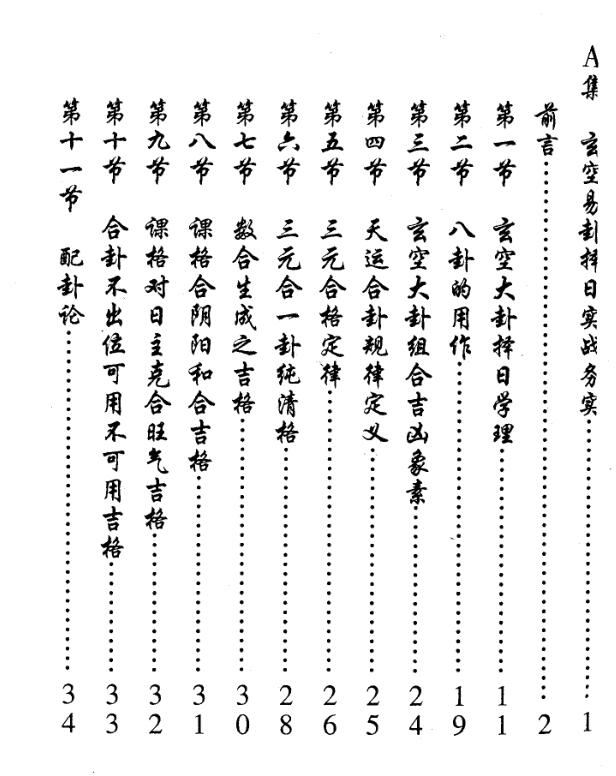 A集 玄空易卦择日实战务实……1
前言……2
第一节 玄空大卦择日学理……11
第二节 八卦的用作……19
第三节 玄空大卦组合吉凶象素……24
第四节 天运合卦规律定义……25
第五节 三元合格定律……26
第六节 三元合一卦纯清格……28
第七节 数合生成之吉格……30
第八节 课格合阴阳和合吉格……31
第九节 课格对日主克合旺气吉格……32
第十节 合卦不出位可用不可用吉格……33
第十一节 配卦论……34